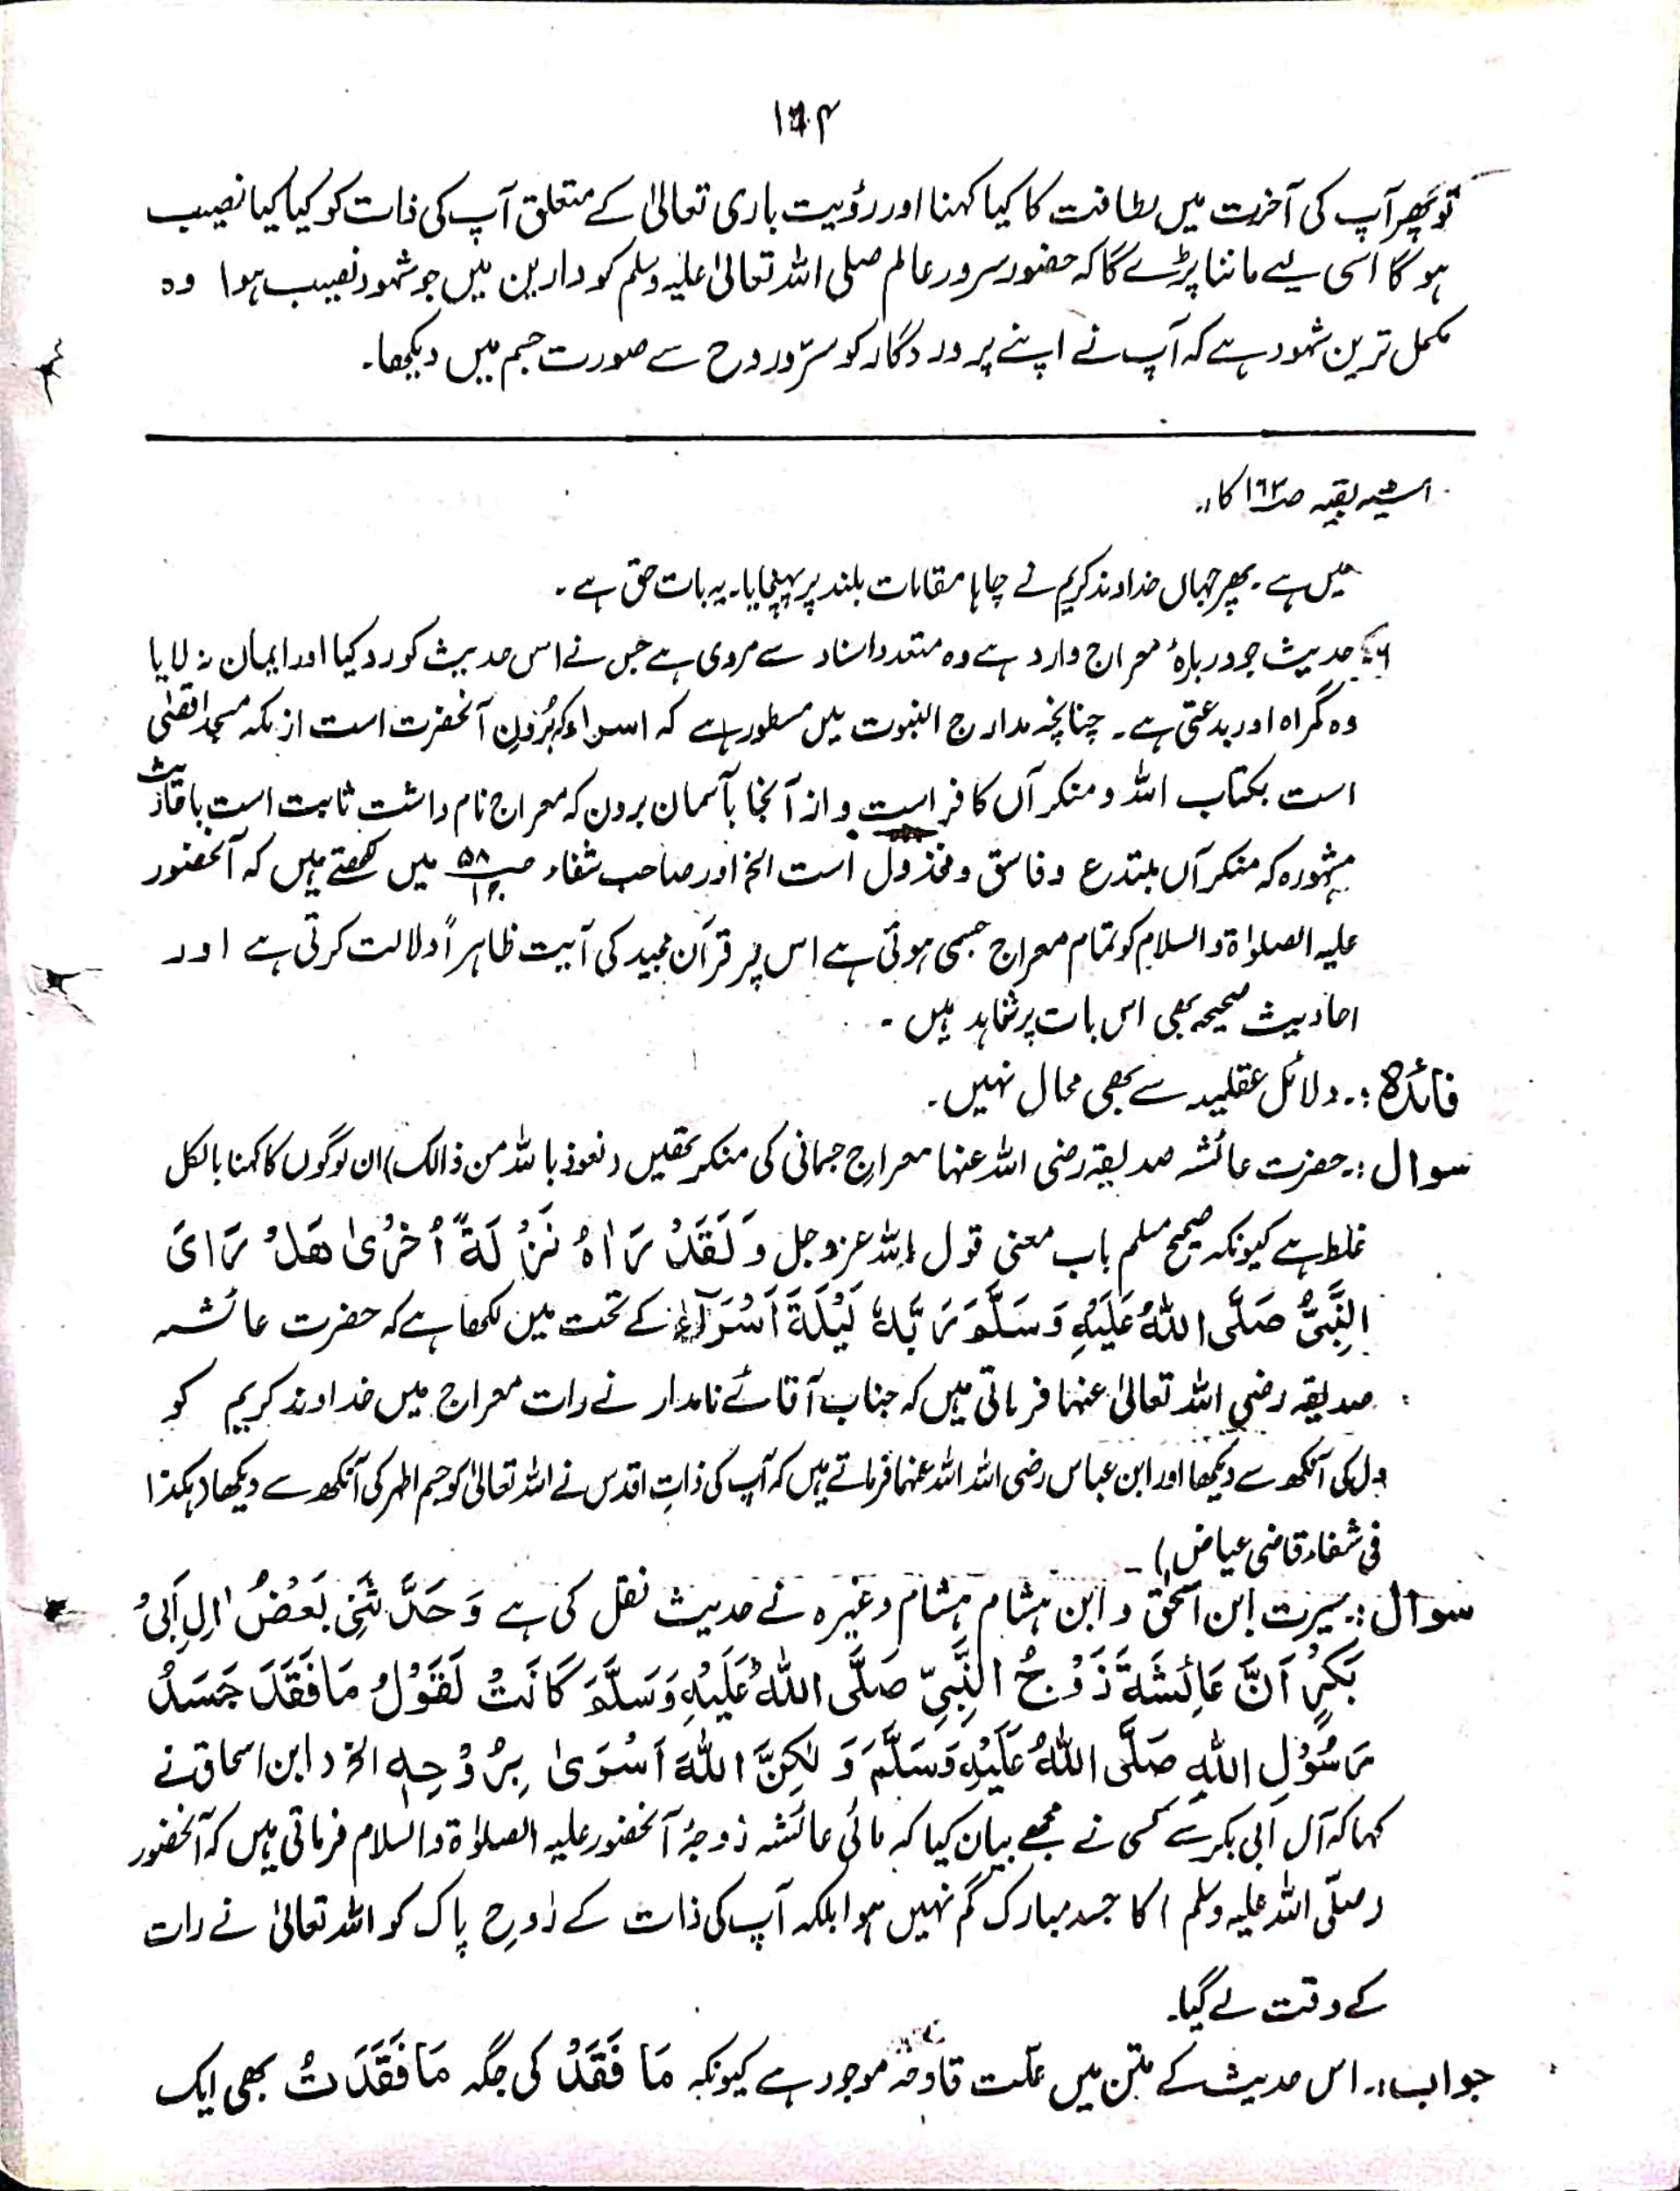 ۱۶۴
تو پھر آپ کی آخرت میں لطافت کا کیا کہنا اور رؤیت باری تعالیٰ کے متعلق آپ کی ذات کو کیا کیا نصیب
ہو گا اسی لیے ماننا پڑے گا کہ حضور سرور عالم صلی اللہ تعالیٰ علیہ وسلم کو دارین میں جو شہود نصیب ہوا وہ
مکمل ترین شہود ہے کہ آپ نے اپنے پروردگار کو سرّ و روح سے صورت جسم میں دیکھا۔
بقیہ صہ ۱۶۳ کا
میں ہے۔ پھر جہاں خداوند کریم نے چاہا مقامات بلند پر پہنچایا۔ یہ بات حق ہے۔
حدیث جو دربارۂ معراج وارد ہے وہ متعدد اسناد سے مروی ہے جس نے اس حدیث کو رد کیا اور ایمان نہ لایا
وہ گمراہ اور بدعتی ہے۔ چنانچہ مدارج النبوت میں مسطور ہے کہ اسراء کہ بُردنِ آنحضرت است از مکہ مسجد اقصٰی
است بکتاب اللہ و منکر آں کافر است و از آنجا بآسمان بردن کہ معراج نام داشت ثابت است باحادیث
مشہورہ کہ منکر آں مبتدع و فاسق و مخذول است الخ اور صاحب شفاء صہ ۵۸ میں لکھتے ہیں کہ آنحضور
علیہ الصلوٰۃ والسلام کو تمام معراج جسمی ہوئی ہے اس پر قرآن مجید کی آیت ظاہراً دلالت کرتی ہے اور
احادیث صحیحہ بھی اس بات پر شاہد ہیں۔
فائدہ :۔ دلائل عقلیہ سے بھی محال نہیں۔
سوال :۔ حضرت عائشہ صدیقہ رضی اللہ عنہا معراج جسمانی کی منکر تھیں (نعوذ باللہ من ذالک) ان لوگوں کا کہنا بالکل
غلط ہے کیونکہ صحیح مسلم باب معنی قول اللہ عزوجل وَ لَقَدْ رَاٰہُ نَزْلَةً اُخْرٰی هَلْ رَاٰیَ
النَّبِیُّ صَلَّی اللّٰهُ عَلَیْهِ وَسَلَّمَ رَبَّهٗ لَیْلَةَ اَسْرَآءِ کے تحت میں لکھا ہے کہ حضرت عائشہ
صدیقہ رضی اللہ تعالیٰ عنہما فرماتی ہیں کہ جناب آقائے نامدار نے رات معراج میں خداوند کریم کو
دل کی آنکھ سے دیکھا اور ابن عباس رضی اللہ اللہ عنہما فرماتے ہیں کہ آپ کی ذات اقدس نے اللہ تعالیٰ کو جسم اطہر کی آنکھ سے دیکھا (ہکذا
فی شفاء قاضی عیاض)۔
سوال :۔ سیرت ابن اسحٰق و ابن ہشام ہشام وغیرہ نے حدیث نقل کی ہے وَ حَدَّ ثَنِیْ بَعْضُ اٰلِ اَبِیْ
بَکْرٍ اَنَّ عَائِشَةَ زَوْجُ النَّبِیِّ صَلَّی اللّٰهُ عَلَیْهِ وَسَلَّمَ کَانَتْ تَقُوْلُ مَا فَقَدَ جَسَدُ
رَسُوْلِ اللّٰهِ صَلَّی اللّٰهُ عَلَیْهِ وَسَلَّمَ وَ لٰکِنَّ اللّٰهَ اَسْرٰی بِرُوْحِهٖ الخ (ابن اسحاق نے
کہا کہ آل ابی بکر سے کسی نے مجھے بیان کیا کہ مائی عائشہ زوجۂ آنحضور علیہ الصلوٰۃ والسلام فرماتی ہیں کہ آنحضور
(صلّی اللہ علیہ وسلم) کا جسد مبارک گم نہیں ہوا بلکہ آپ کی ذات کے رُوحِ پاک کو اللہ تعالیٰ نے رات
کے وقت لے گیا۔
جواب :۔ اس حدیث کے متن میں علّت قادحہ موجود ہے کیونکہ مَا فَقَدْ کی جگہ مَا فَقَدَتْ بھی ایک